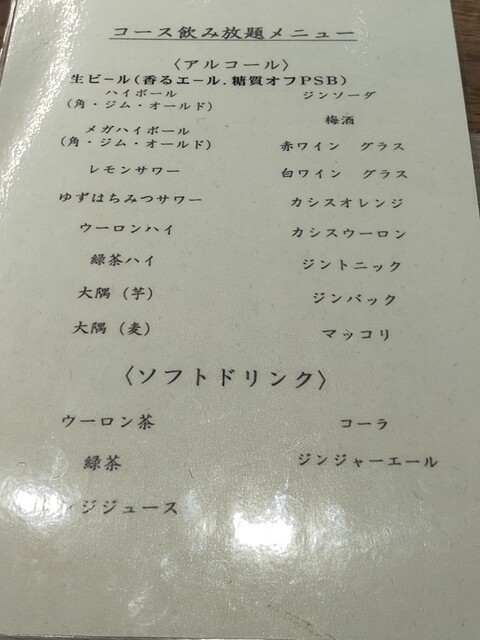 コース飲み放題メニュー
〈アルコール〉
生ビール(香るエール.糖質オフPSB)
ハイボール
(角・ジム・オールド)
メガハイボール
(角・ジム・オールド)
レモンサワー
ゆずはちみつサワー
ウーロンハイ
緑茶ハイ
大隅(芋)
大隅(麦)
ジンソーダ
梅酒
赤ワイン グラス
白ワイン グラス
カシスオレンジ
カシスウーロン
ジントニック
ジンバック
マッコリ
〈ソフトドリンク〉
ウーロン茶
緑茶
ジジュース
コーラ
ジンジャーエール